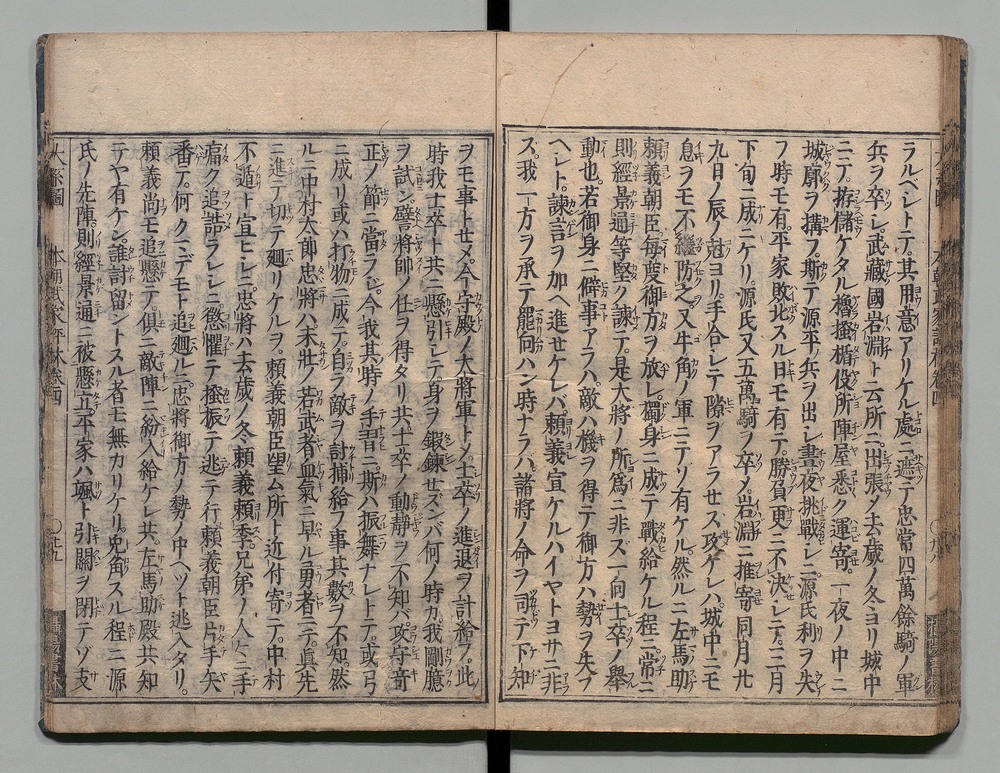 ラルベシトテ其用意アリケル處ニ遮テ忠常四萬餘騎ノ軍
兵ヲ卒シ武藏國岩淵ト云所ニ出張シ去歲ノ冬ヨリ城中
ニテ拵儲ケタル櫓搔楯役所陣屋悉ク運寄一夜ノ中ニ
城廓ヲ搆フ斯テ源平ノ兵ヲ出シ晝夜挑戰シニ源氏利ヲ失
フ時モ有平家敗北スル日モ有テ勝負更ニ不決シニ二月
下旬ニ成ニケリ源氏又五萬騎ヲ卒メ岩淵ニ推寄同月廿
九日ノ辰ノ尅ヨリ手合シテ隙ヲアラセス攻ゲレハ城中ニモ
息ヲモ不繼防之又牛角ノ軍ニテソ有ケル然ルニ左馬助
頼義朝臣毎度御方ヲ放レ獨身ニ成テ戰給ケル程ニ常ニ
則經景通等堅ク諫テ是大將ノ所爲ニ非ズ一向士卒ノ舉
動也若御身ニ僻事アラハ敵ハ機ヲ得テ御方ハ勢ヲ失ナ
ヘシト諫言ヲ加ヘ進セケレバ頼義宣ケルハイヤトヨサニ非
ス我一方ヲ承テ罷向ハン時ナラハ諸將ノ命ヲ司テ下知
ヲモ事トセメ今守殿ノ大將軍トノ士卒ノ進退ヲ計給フ此
時我士卒ト共ニ懸引シテ身ヲ鍛鍊セズンバ何ノ時カ我剛臆
ヲ試ン譬將帥ノ任ヲ得タリ共士卒ノ動靜ヲ不知バ攻守奇
正ノ節ニ當ラシ今我其時ノ手習ニ斯ハ振舞ナレトテ或弓
ニ成リ或ハ打物ニ成テ自ラ敵ヲ討捕給フ事其數ヲ不知然
ルニ中村太郎忠將ハ未壯ノ若武者血氣ニ早ル勇者ニテ眞先
ニ進テ切テ廻リケルヲ頼義朝臣望ム所ト近付寄テ中村
不遁ト宣ヒシニ忠將ハ去歲ノ冬頼義頼季兄弟ノ人々ニ手
痛ク追詰ラレシニ懲懼テ搔振テ逃テ行頼義朝臣片手矢
番テ何クミデモト追廻ルニ忠將御方ノ勢ノ中ヘツト逃入タリ
頼義尚モ追懸テ俱ニ敵陣ニ紛入給ケレ共左馬助殿共知
テヤ有ケン誰討留ントスル者モ無カリケリ兎角スル程ニ源
氏ノ先陣則經景通ニ被懸立平家ハ颯ト引關ヲ閉テゾ支
大系圖 本朝武家評林卷四 〇廿九